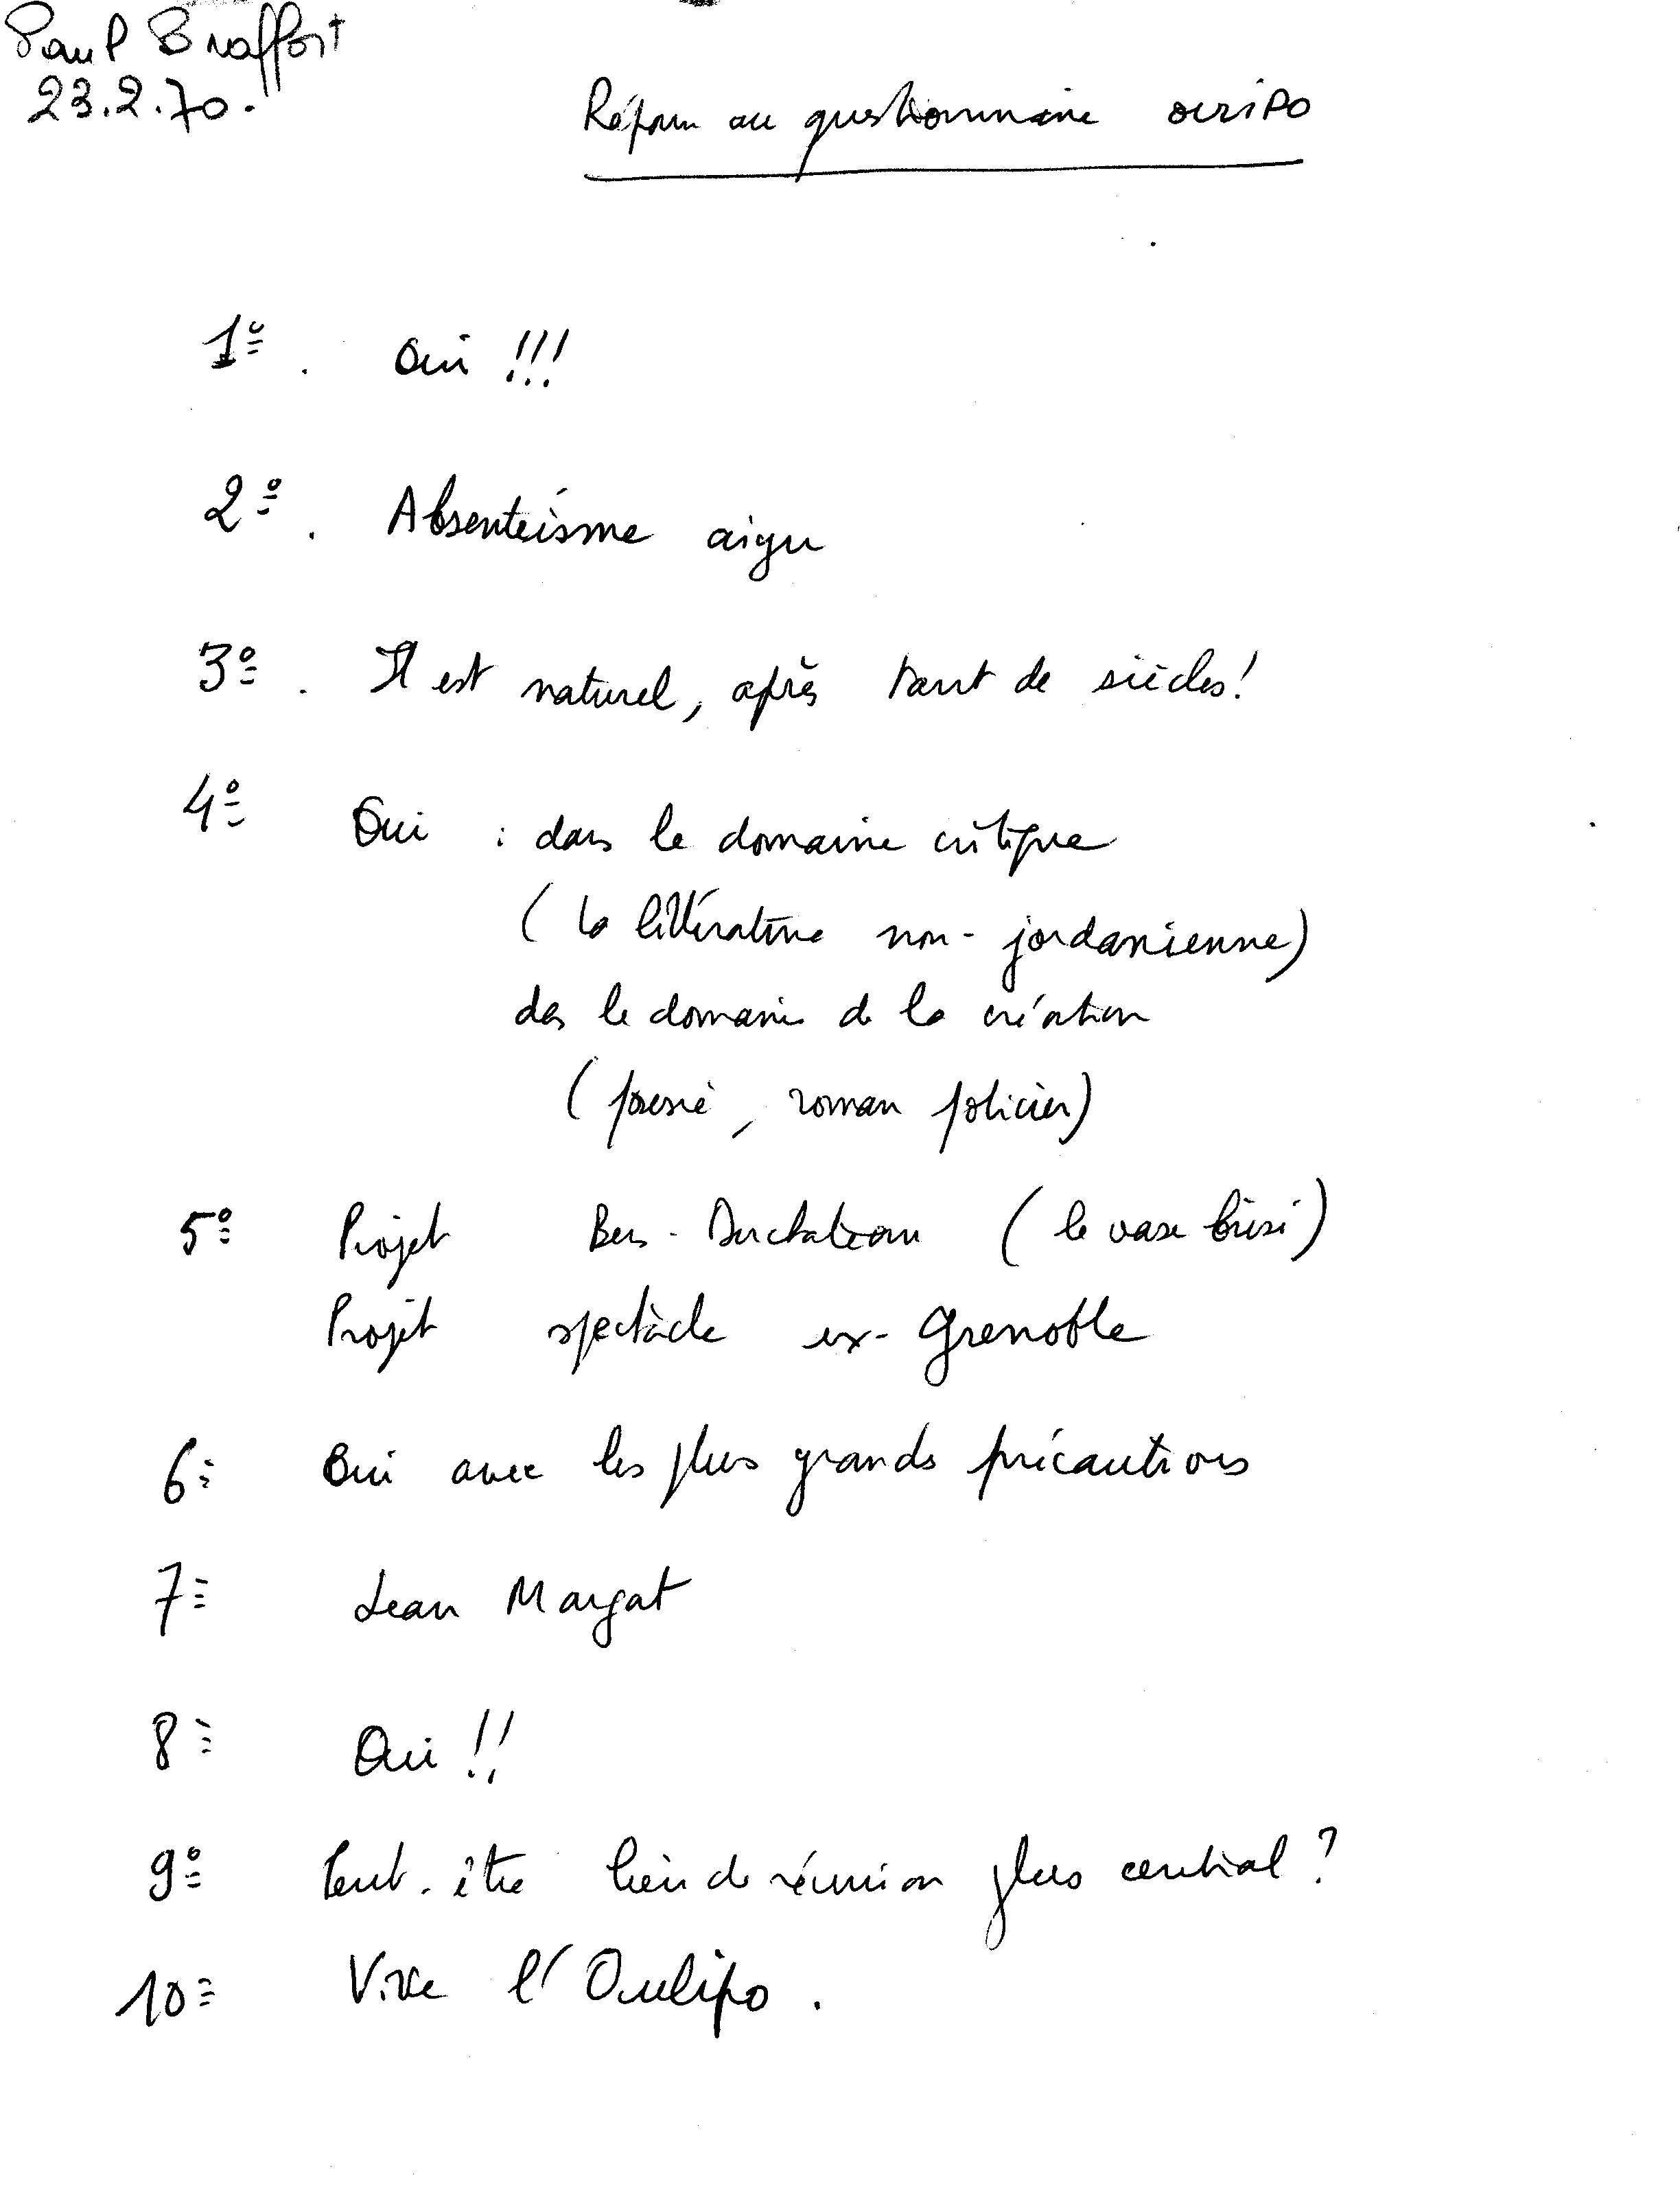 Paul Braffort
23.2.70.
Réponse au questionnaire OULIPO
1º. Oui !!!
2º. Absentéisme aigu
3º. Il est naturel, après tant de siècles !
4º Oui : dans le domaine critique
(la littérature non-jordanienne)
ds le domaine de la création
(poésie, roman policier)
5º Projet Bens-Duchateau (le vase brisé)
Projet spectacle ex-Grenoble
6º Oui avec les plus grands précautions
7º Jean Margat
8º Oui !!
9º Peut-être lieu de réunion plus central ?
10º Vive l'Oulipo.